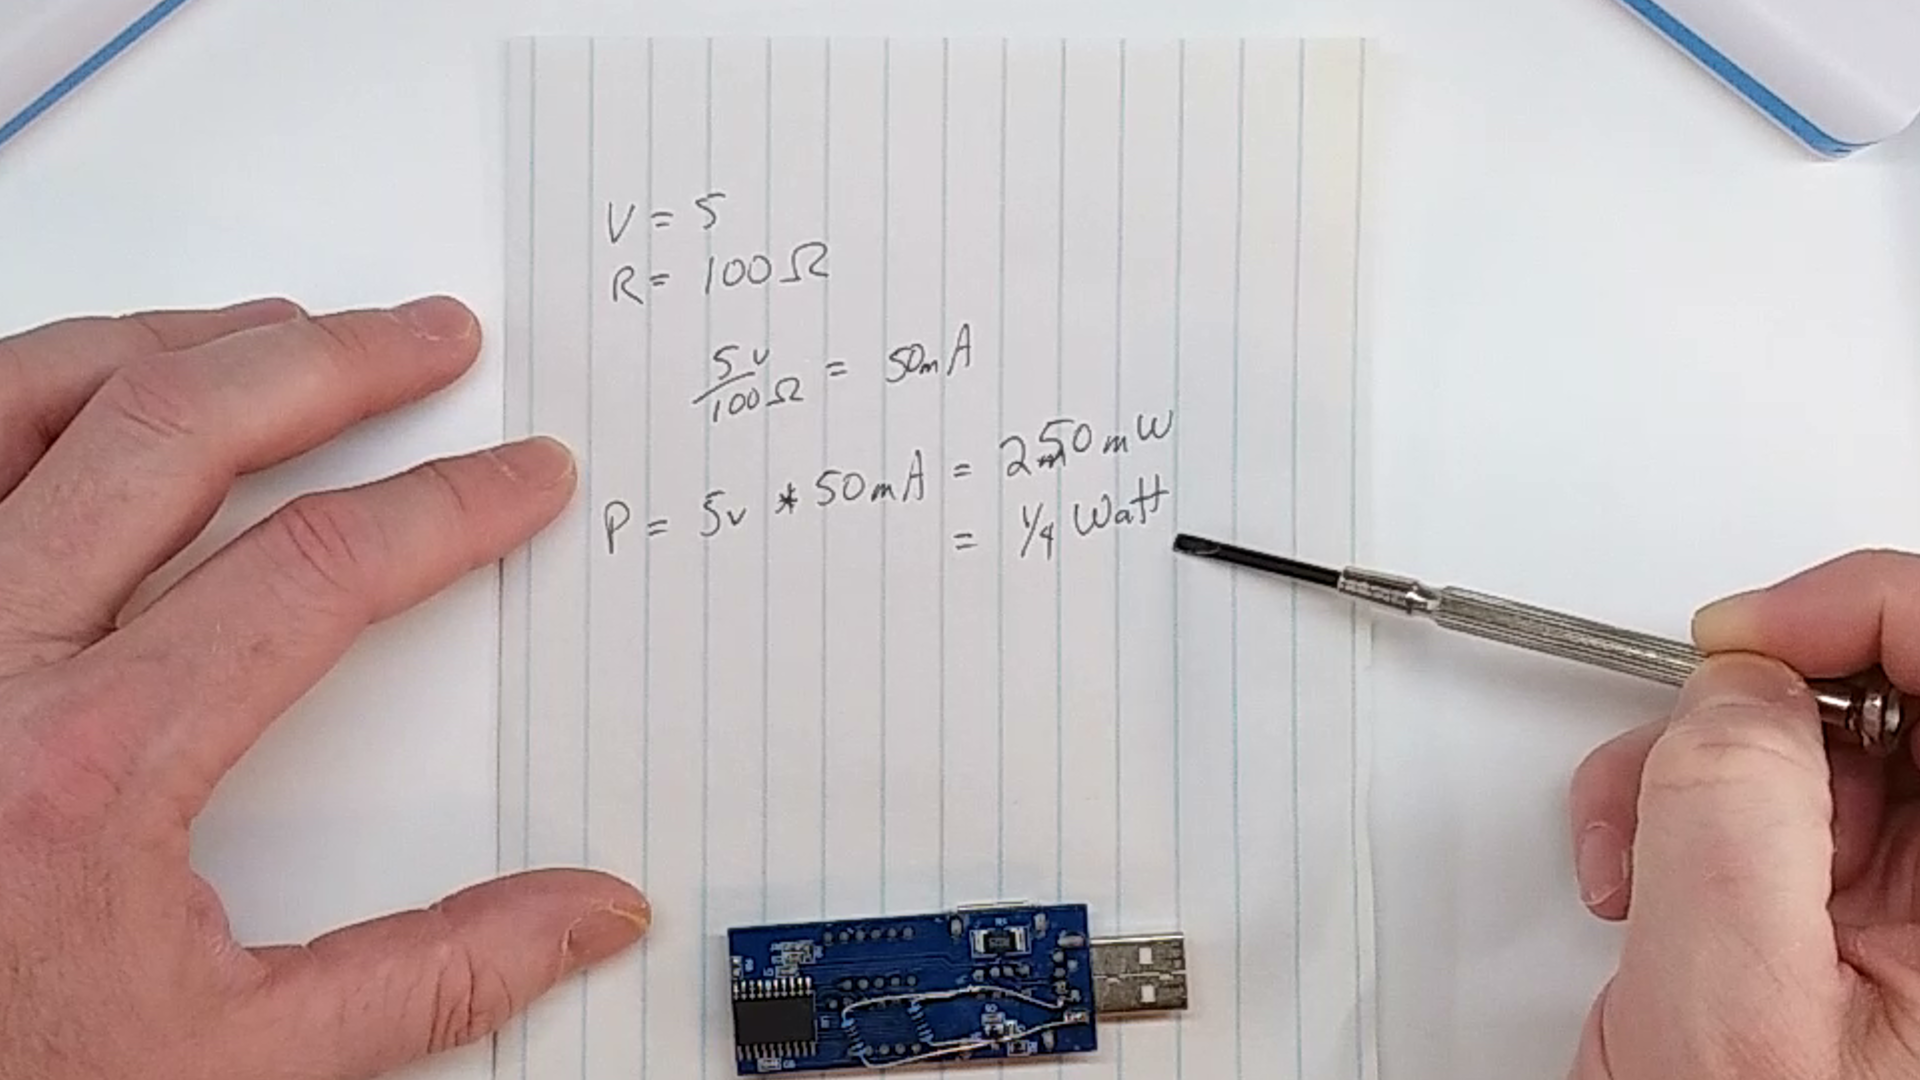 V = 5
R = 100Ω
5v
100Ω = 50mA
P = 5v * 50mA = 250mW
= 1/4 Watt